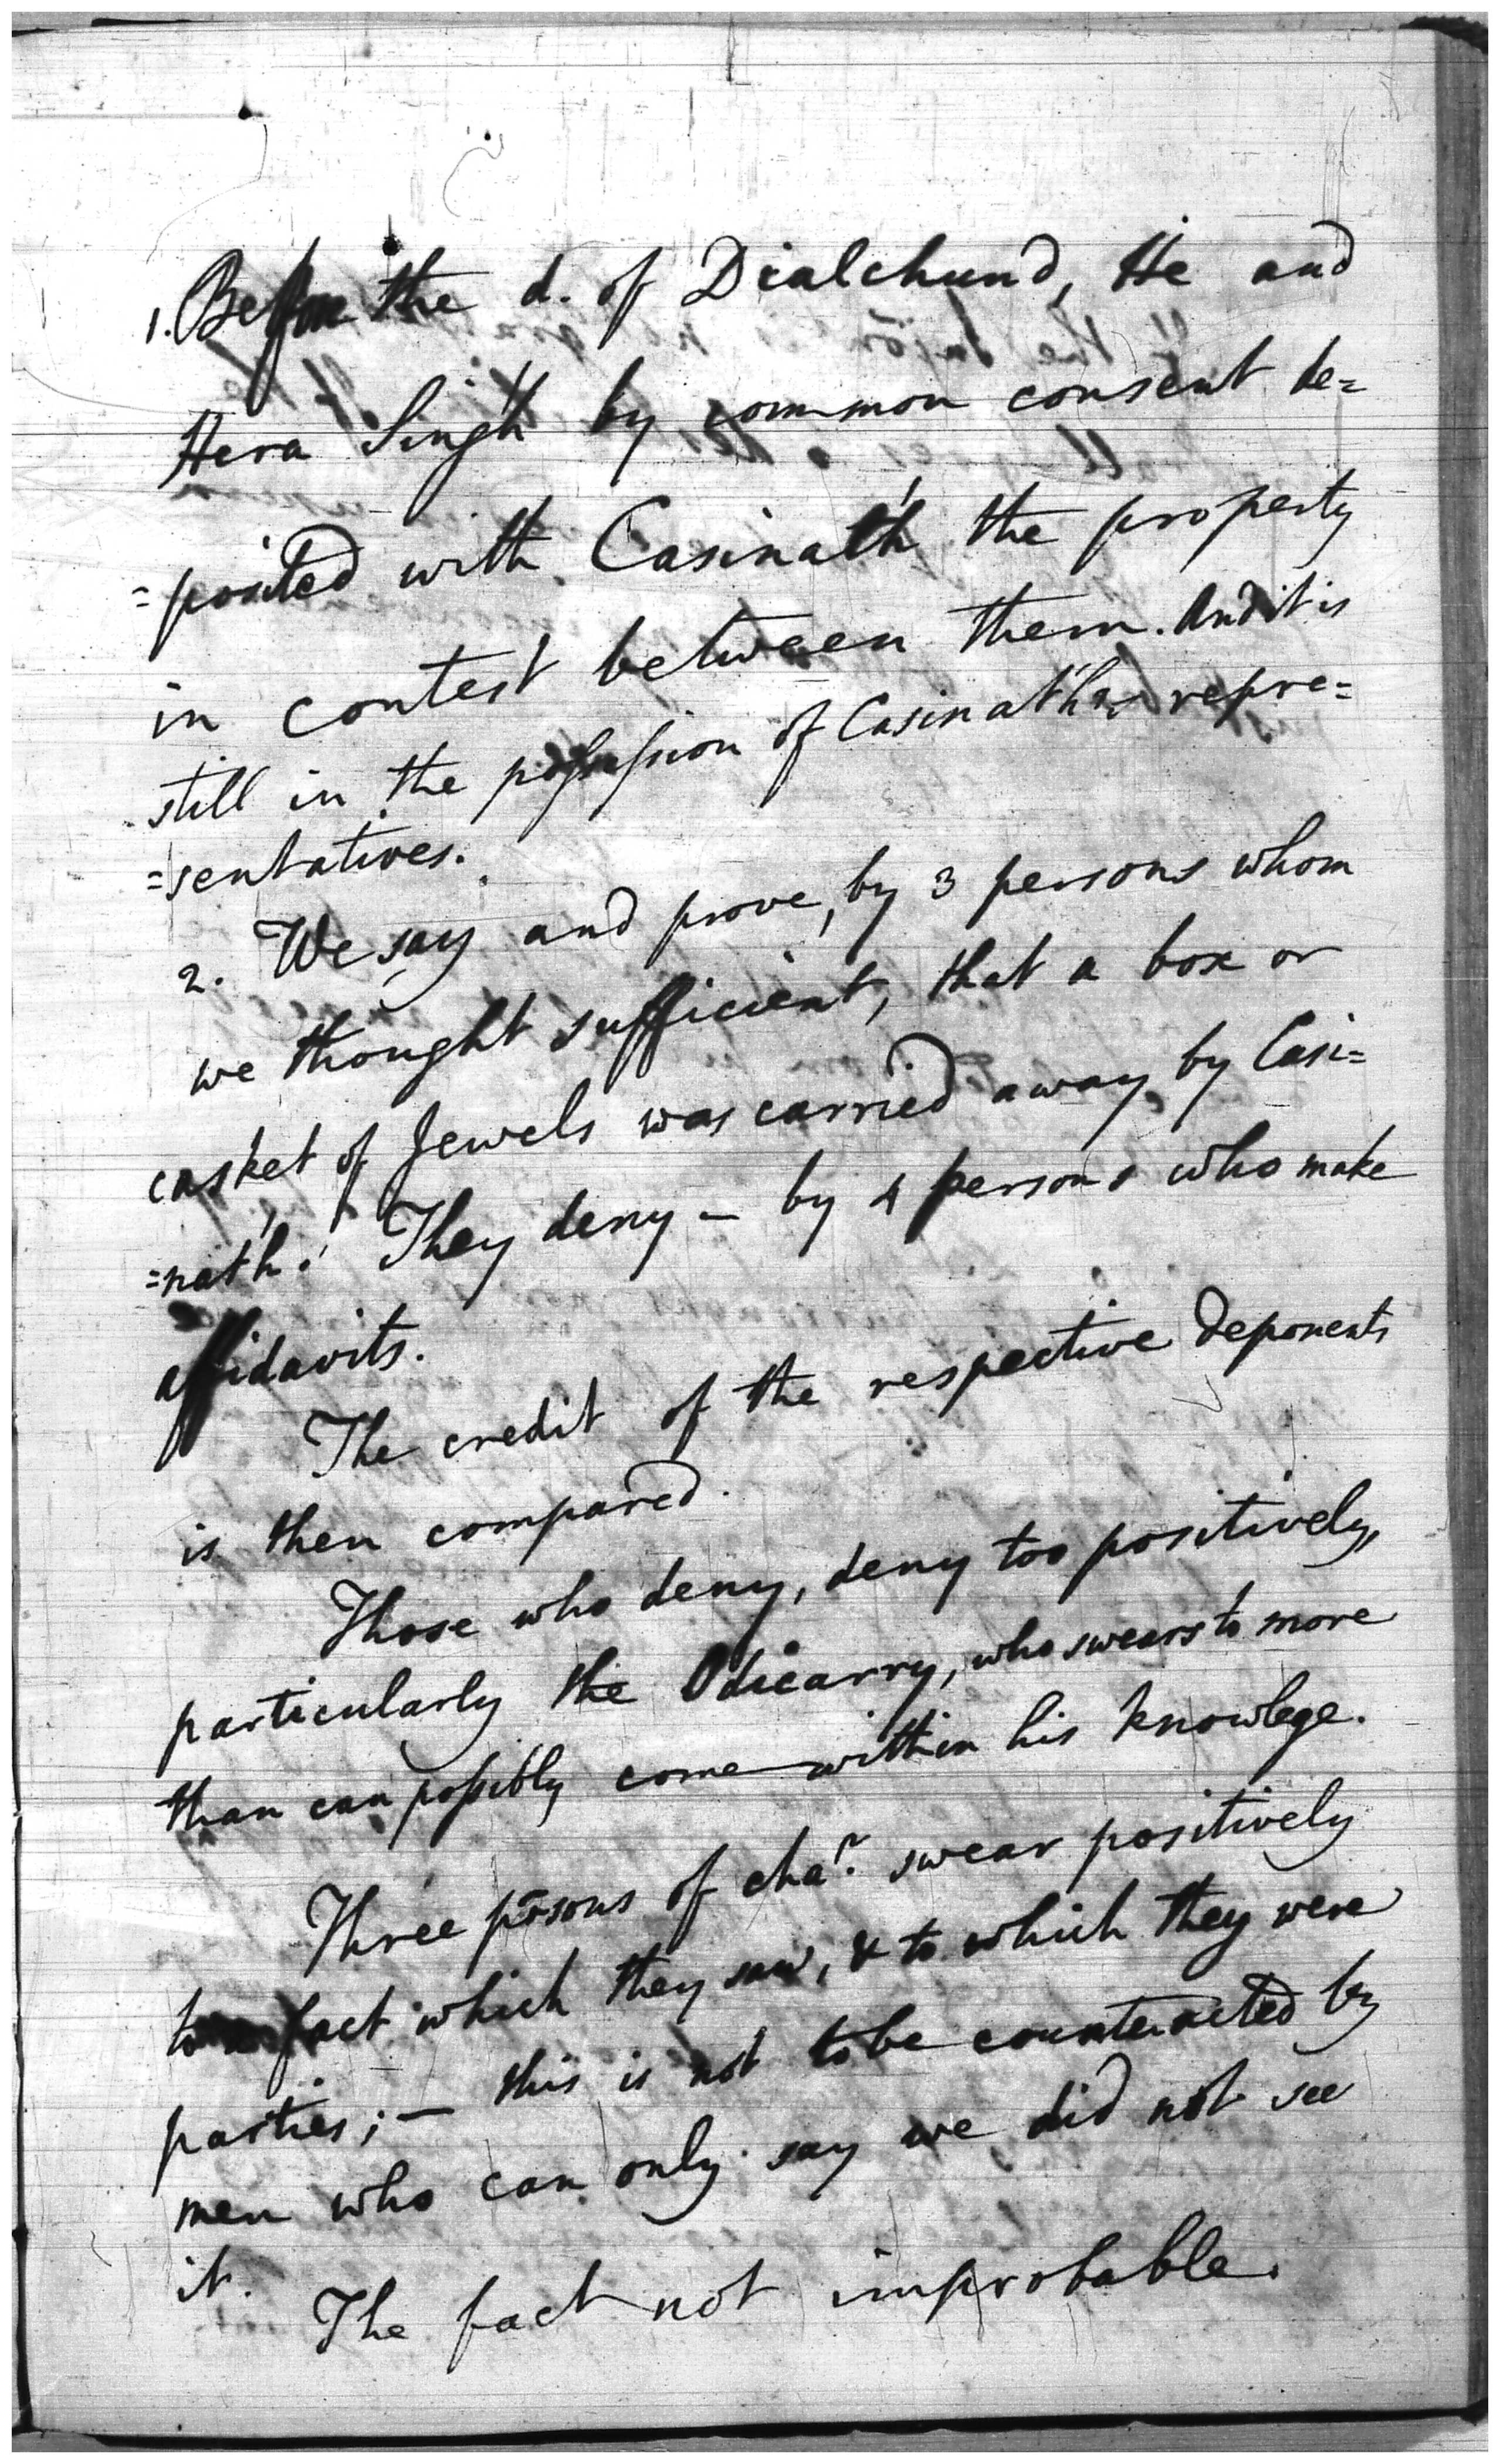 1. Before the d. of Dialchund, He and
Hera Singh by common consent de=
=posited with Casinath the property
in contest between them. And it is
still in the possession of Casinath's repre=
=sentatives.
2. We say and prove, by 3 persons whom
we thought sufficient, that a box or
casket of Jewels was carried away by Casi=
=nath. They deny – by 4 persons who make
affidavits.
The credit of the respective deponents
is then compared.
Those who deny, deny too positively,
particularly the Odicarry, who swears to more
than can possibly come within his knowlege.
Three p̄sons of cha^r. swear positively
to a fact which they saw, & to which they were
parties; – this is not to be counteracted by
men who can only say we did not see
it.
The fact not improbable.